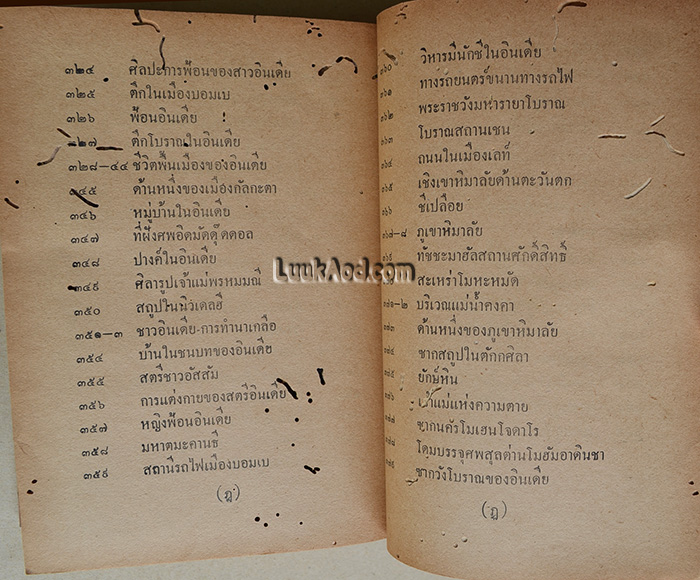 ๓๒๔ ศิลปะการฟ้อนของสาวอินเดีย
๓๒๕ ตึกในเมืองบอมเบ
๓๒๖ ฟ้อนอินเดีย
๓๒๗ ตึกโบราณในอินเดีย
๓๒๘-๔๔ ชีวิตพื้นเมืองของอินเดีย
๓๔๕ ด้านหนึ่งของเมืองกัลกะตา
๓๔๖ หมู่บ้านในอินเดีย
๓๔๗ ที่ฝังศพอิตมัดดุ๊ดดอล
๓๔๘ ปางค์ในอินเดีย
๓๔๙ ศิลารูปเจ้าแม่พรหมมณี
๓๕๐ สถูปในนิวเดลฮี
๓๕๑-๓ ชาวอินเดีย-การทำนาเกลือ
๓๕๔ บ้านในชนบทของอินเดีย
๓๕๕ สตรีชาวอัสสัม
๓๕๖ การแต่งกายของสตรีอินเดีย
๓๕๗ หญิงฟ้อนอินเดีย
๓๕๘ มหาตมะคานธี
๓๕๙ สถานีรถไฟเมืองบอมเบ
(ฎ)
๓๖๐ วิหารมีนักชีในอินเดีย
๓๖๑ ทางรถยนตร์ขนานทางรถไฟ
๓๖๒ พระราชวังมหารายาโบราณ
๓๖๓ โบราณสถานเชน
๓๖๔ ถนนในเมืองเลท์
๓๖๕ เชิงเขาหิมาลัยด้านตะวันตก
๓๖๖ ชีเปลือย
๓๖๗-๘ ภูเขาหิมาลัย
ทัชชะมาฮัลสถานศักดิ์สิทธิ์
สะเหร่าโมหะหมัด
บริเวณแม่น้ำคงคา
ด้านหนึ่งของภูเขาหิมาลัย
ซากสถูปในตักกศิลา
ยักษ์หิน
เจ้าแม่แห่งความตาย
ซากนครโมเฮนโจดาโร
โดมบรรจุศพสุลต่านโมฮัมอาดินชา
ซากวังโบราณของอินเดีย
(ฏ)
LuukAod.com